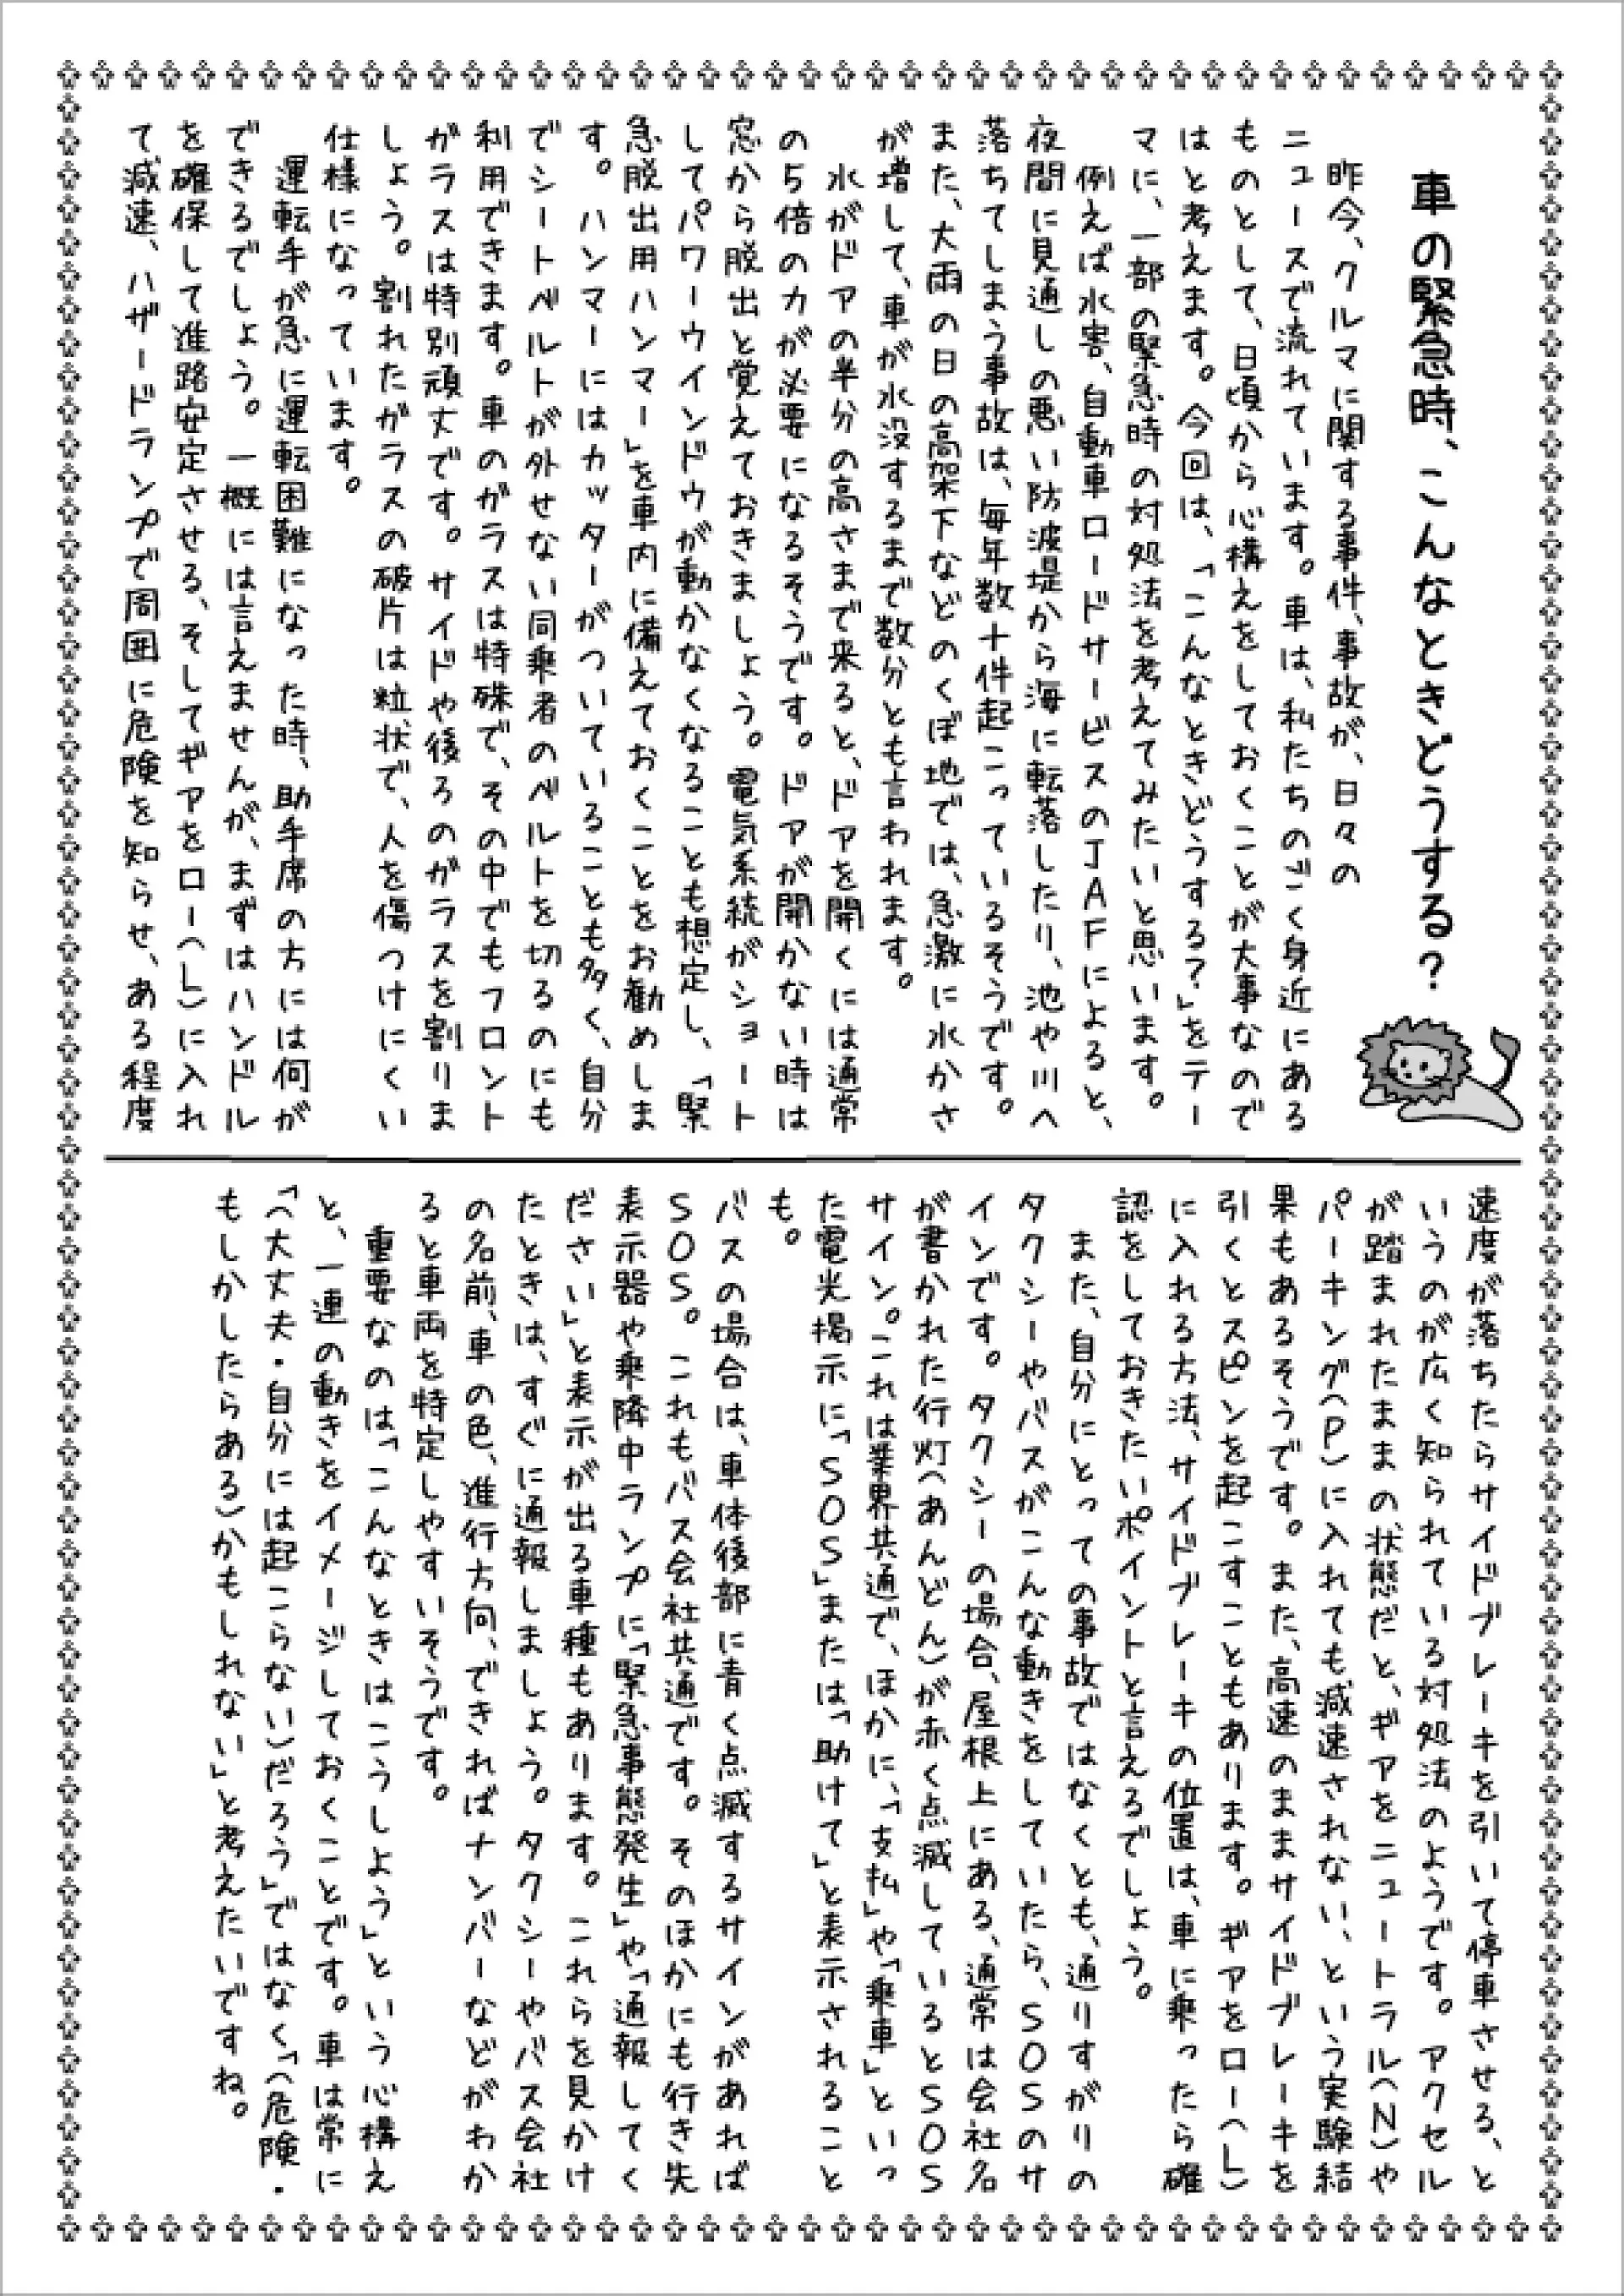 車の緊急時、こんなときどうする？
昨今、クルマに関する事件、事故が、日々の
ニュースで流れています。車は、私たちのごく身近にある
ものとして、日頃から心構えをしておくことが大事なので
はと考えます。今回は、「こんなときどうする？」をテー
マに、一部の緊急時の対処法を考えてみたいと思います。
例えば水害、自動車ロードサービスのＪＡＦによると、
夜間に見通しの悪い防波堤から海に転落したり、池や川へ
落ちてしまう事故は、毎年数十件起こっているそうです。
また、大雨の日の高架下などのくぼ地では、急激に水かさ
が増して、車が水没するまで数分とも言われます。
水がドアの半分の高さまで来ると、ドアを開くには通常
の５倍の力が必要になるそうです。ドアが開かない時は
窓から脱出と覚えておきましょう。電気系統がショート
してパワーウインドウが動かなくなることも想定し、「緊
急脱出用ハンマー」を車内に備えておくことをお勧めしま
す。ハンマーにはカッターがついていることも多く、自分
でシートベルトが外せない同乗者のベルトを切るのにも
利用できます。車のガラスは特殊で、その中でもフロント
ガラスは特別頑丈です。サイドや後ろのガラスを割りま
しょう。割れたガラスの破片は粒状で、人を傷つけにくい
仕様になっています。
運転手が急に運転困難になった時、助手席の方には何が
できるでしょう。一概には言えませんが、まずはハンドル
を確保して進路安定させる、そしてギアをロー（Ｌ）に入れ
て減速、ハザードランプで周囲に危険を知らせ、ある程度
速度が落ちたらサイドブレーキを引いて停車させる、と
いうのが広く知られている対処法のようです。アクセル
が踏まれたままの状態だと、ギアをニュートラル（Ｎ）や
パーキング（Ｐ）に入れても減速されない、という実験結
果もあるそうです。また、高速のままサイドブレーキを
引くとスピンを起こすこともあります。ギアをロー（Ｌ）
に入れる方法、サイドブレーキの位置は、車に乗ったら確
認をしておきたいポイントと言えるでしょう。
また、自分にとっての事故ではなくとも、通りすがりの
タクシーやバスがこんな動きをしていたら、ＳＯＳのサ
インです。タクシーの場合、屋根上にある、通常は会社名
が書かれた行灯（あんどん）が赤く点滅しているとＳＯＳ
サイン。これは業界共通で、ほかに、「支払」や「乗車」といっ
た電光掲示に「ＳＯＳ」または「助けて」と表示されること
も。
バスの場合は、車体後部に青く点滅するサインがあれば
ＳＯＳ。これもバス会社共通です。そのほかにも行き先
表示器や乗降中ランプに「緊急事態発生」や「通報してく
ださい」と表示が出る車種もあります。これらを見かけ
たときは、すぐに通報しましょう。タクシーやバス会社
の名前、車の色、進行方向、できればナンバーなどがわか
ると車両を特定しやすいそうです。
重要なのは「こんなときはこうしよう」という心構え
と、一連の動きをイメージしておくことです。車は常に
「（大丈夫・自分には起こらない）だろう」ではなく「（危険・
もしかしたらある）かもしれない」と考えたいですね。